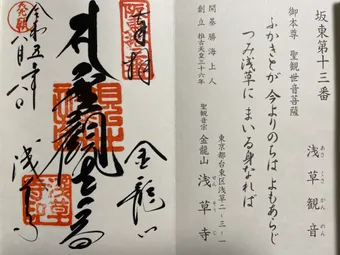 坂東第十三番
浅草観音
あさくさかんのん
御本尊 聖観世音菩薩
ふかきとが 今よりのちは よもあらじ
つみ浅草に まいる身なれば
東京都台東区浅草二ー三ー一
聖観音宗 金龍山 浅草寺
せんそうじ
開基 勝海上人
創立 推古天皇三十六年
奉拝
金龍山
聖観世音
浅草寺
令和五年
発願